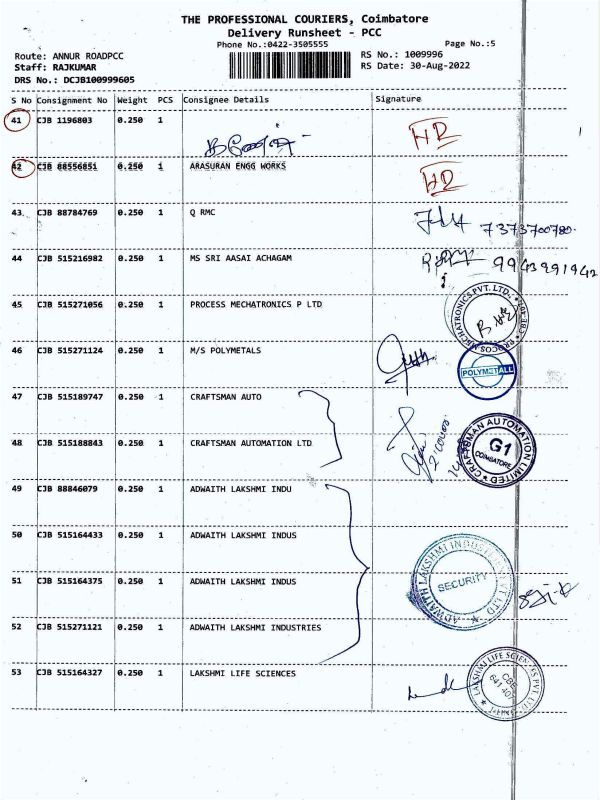 THE PROFESSIONAL COURIERS, Coimbatore
Delivery Runsheet - PCC
Phone No.:0422-3505555
Page No.:5
Route: ANNUR ROADPCC
RS No.: 1009996
Staff: RAJKUMAR
RS Date: 30-Aug-2022
DRS No.: DCJB100999605
S No Consignment No Weight PCS Consignee Details Signature
41 CJB 1196803 0.250 1
HD
42 CJB 88556851 0.250 1 ARASURAN ENGG WORKS
HD
43 CJB 88784769 0.250 1 Q RMC
7373700780
44 CJB 515216982 0.250 1 MS SRI AASAI ACHAGAM
9943991942
45 CJB 515271056 0.250 1 PROCESS MECHATRONICS P LTD
46 CJB 515271124 0.250 1 M/S POLYMETALS
POLYMETALL
47 CJB 515189747 0.250 1 CRAFTSMAN AUTO
48 CJB 515188843 0.250 1 CRAFTSMAN AUTOMATION LTD
CRAFTSMAN AUTOMATION LIMITED
G1
COIMBATORE
49 CJB 88846079 0.250 1 ADWAITH LAKSHMI INDU
50 CJB 515164433 0.250 1 ADWAITH LAKSHMI INDUS
51 CJB 515164375 0.250 1 ADWAITH LAKSHMI INDUS
ADWAITH LAKSHMI INDUSTRIES PVT LTD
SECURITY
52 CJB 515271121 0.250 1 ADWAITH LAKSHMI INDUSTRIES
53 CJB 515164327 0.250 1 LAKSHMI LIFE SCIENCES
LAKSHMI LIFE SCIENCES PVT. LTD.
CBE
641 407